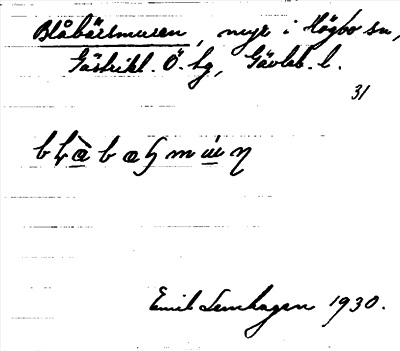 Blåbärsmuren, myr i Högbo sn,
Gästrikl. Ö. tg, Gävleb. l.
31
Emil Lemhagen 1930.